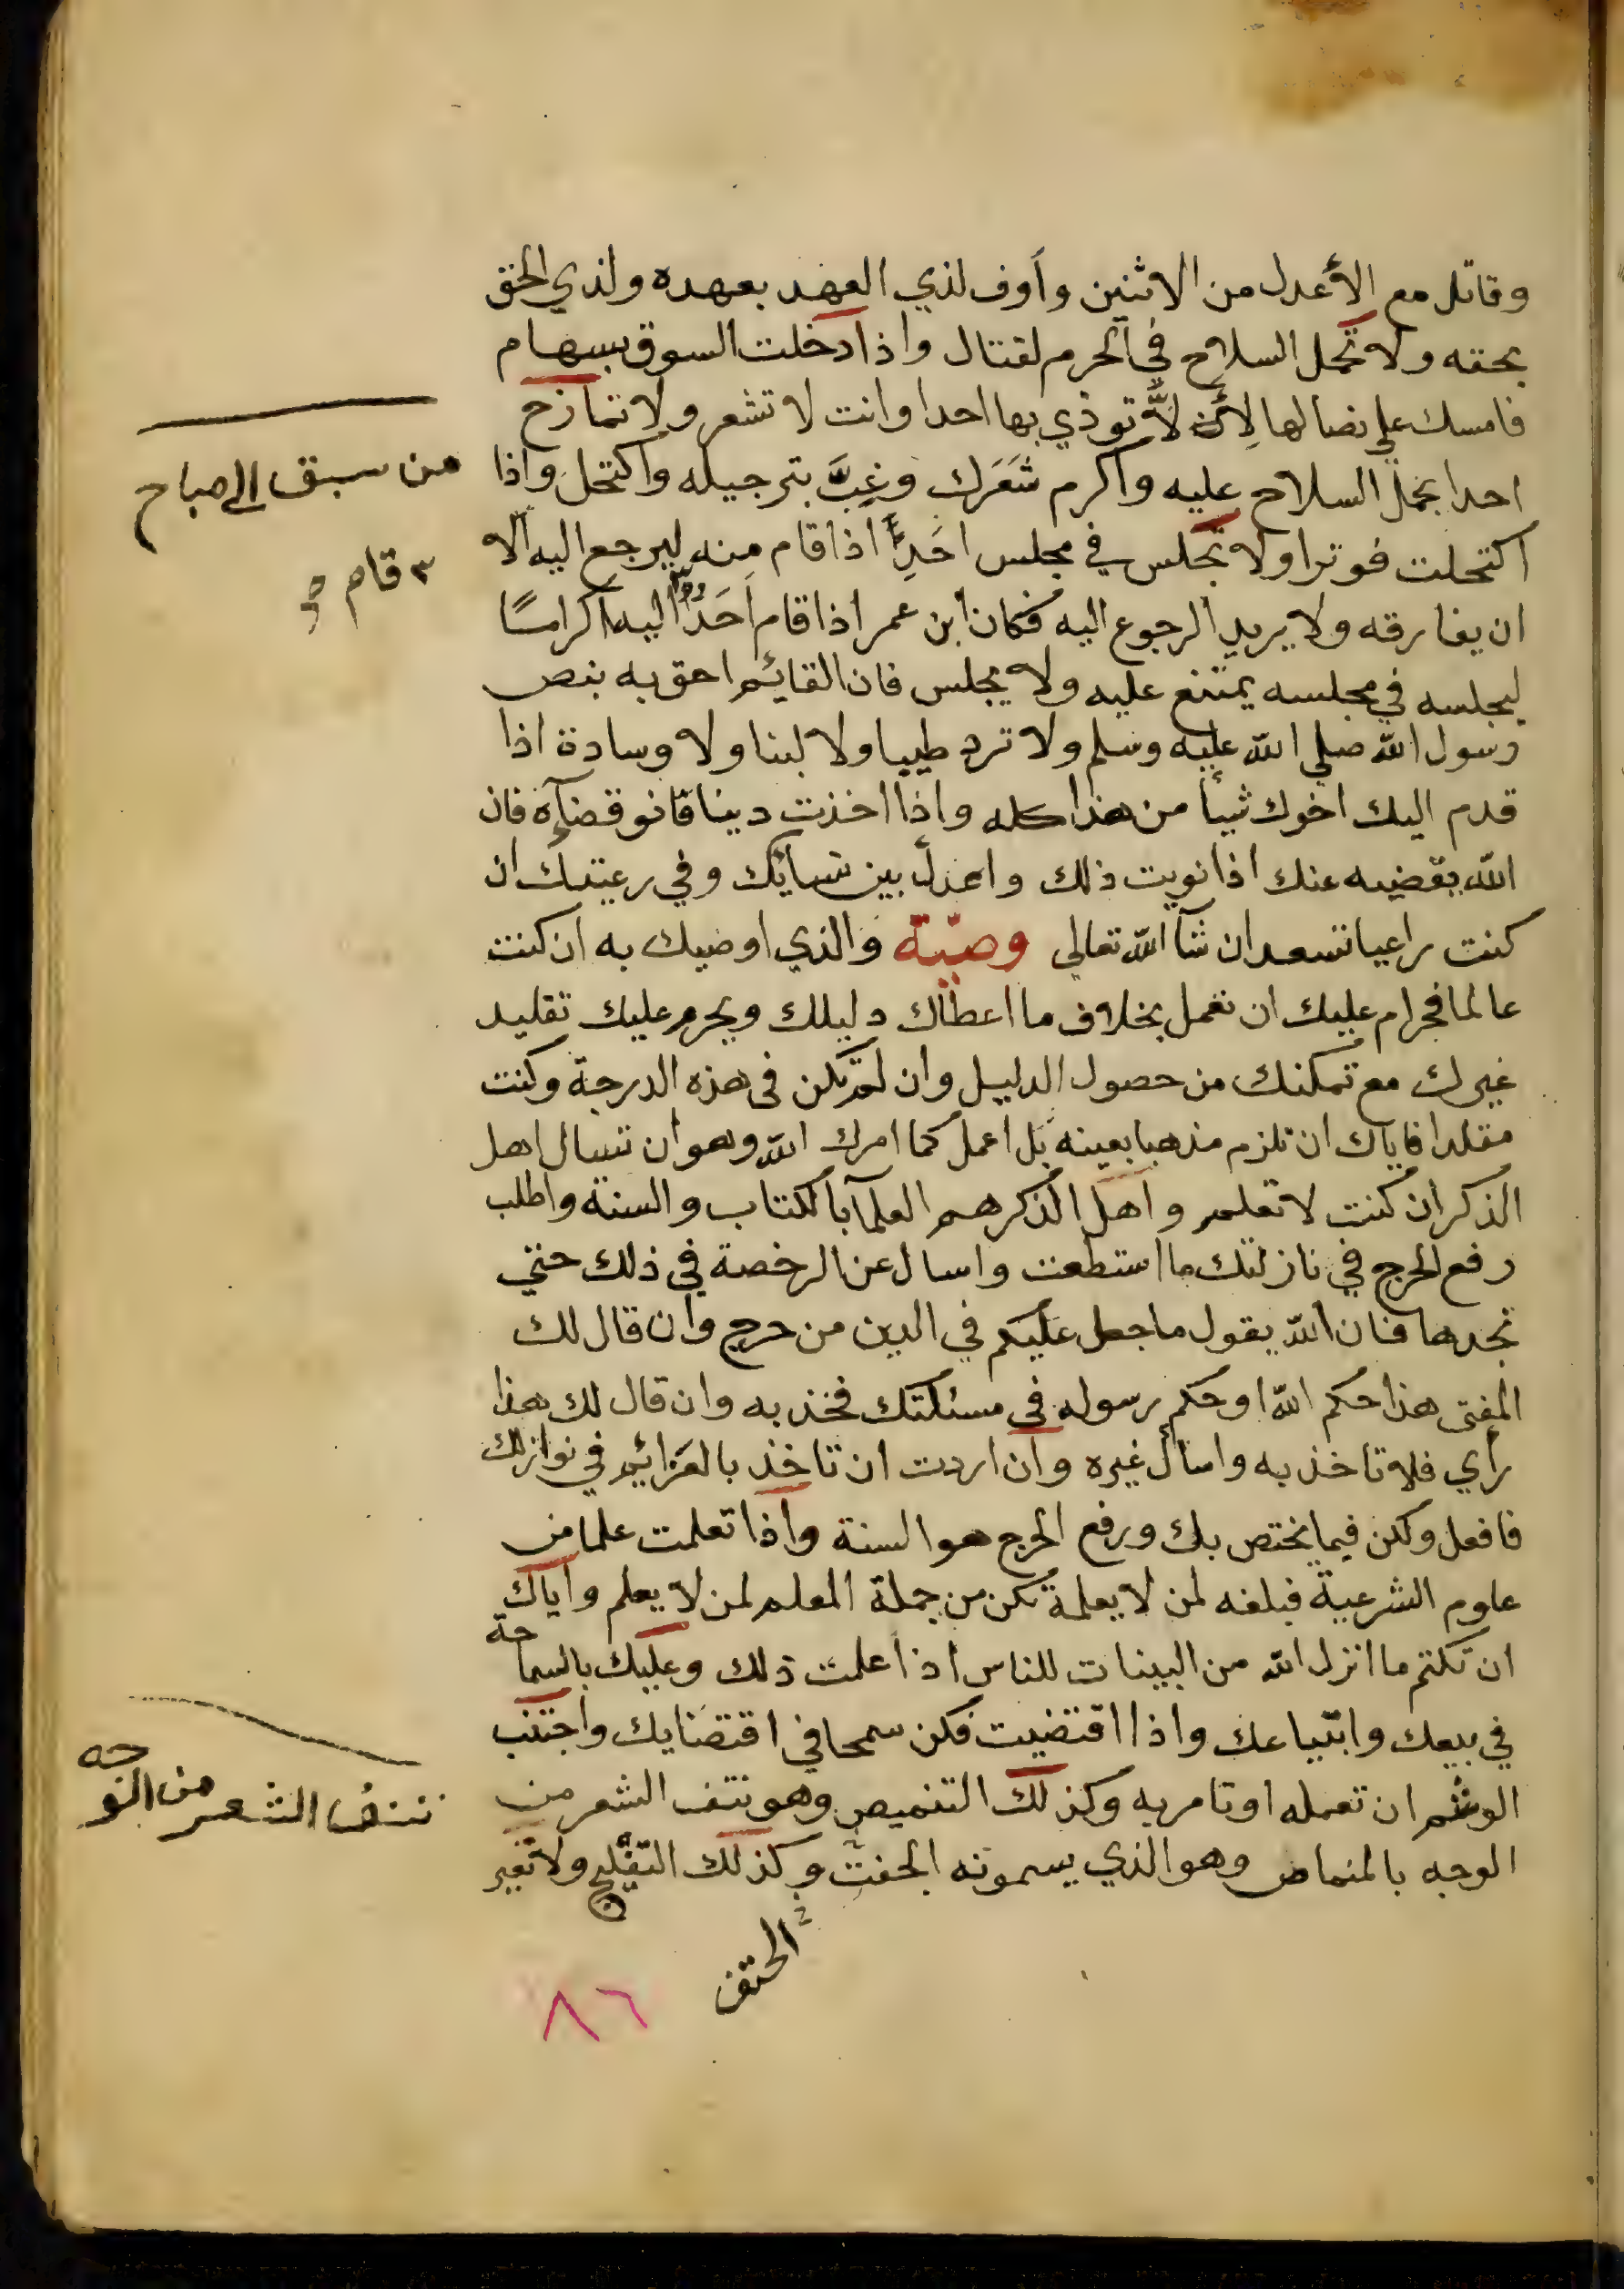 وقاتل مع الأعدل من الاثنين وأوف لذي العهد بعهده ولذي الحق
بحقه ولا تحمل السلاح في الحرم لقتال واذا دخلت السوق بسهام
فامسك علي نصالها لأن لا توذي بها احدا وانت لا تشعر ولا تمازح
احدا بحمل السلاح عليه واكرم شَعَرَك وغِبَّ بترجيله واكتحل واذا
اكتحلت فوترا ولا تجلس في مجلس احَدٍ اذا قام منه ليرجع اليه الا
ان يفارقه ولا يريد الرجوع اليه فكان ابن عمر اذا قام احَدٌ اليه اكراما
ليجلسه في مجلسه يمتنع عليه ولا يجلس فان القايم احق به بنص
رسول الله صلي الله عليه وسلم ولا ترد طيبا ولا لبنا ولا وسادة اذا
قدم اليك اخوك شيأ من هذا كله واذا اخذت دينا فانو قضآءه فان
الله يقضيه عنك اذا نويت ذلك واعدل بين نسايك وفي رعيتك ان
كنت راعيا تسعد ان شآ الله تعالي وصيّة والذي اوصيك به ان كنت
عالما فحرام عليك ان تعمل بخلاف ما اعطاك دليلك ويحرم عليك تقليد
غيرك مع تمكنك من حصول الدليل وان لم تكن في هذه الدرجة وكنت
مقلدا فاياك ان تلزم مذهبا بعينه بل اعمل كما امرك الله وهو ان تسال اهل
الذكر ان كنت لا تعلم واهل الذكر هم العلمآ بالكتاب والسنة واطلب
رفع الحرج في نازلتك ما استطعت واسال عن الرخصة في ذلك حتي
تجدها فان الله يقول ما جعل عليكم في الدين من حرج وان قال لك
المفتى هذا حكم الله او حكم رسوله في مسئلتك فخذ به وان قال لك هذا
رأي فلا تاخذ به واسأل غيره وان اردت ان تاخذ بالعزائم في نوازلك
فافعل ولكن فيما يختص بك ورفع الحرج هو السنة واذا تعلمت علما من
علوم الشرعية فبلغه لمن لا يعلمه تكن من جملة المعلم لمن لا يعلم واياك
ان تكتم ما انزل الله من البينات للناس اذا علمت ذلك وعليك بالسماحة
في بيعك وابتياعك واذا اقتضيت فكن سمحا في اقتضايك واجتنب
الوشم ان تعمله او تامر به وكذلك التنميص وهو نتف الشعر من
الوجه بالمنماص وهو الذي يسمونه الحفت وكذلك التفليج ولا تغير
من سبق الى صباح
٣ قام
نتف الشعر من الوجه
٨٦